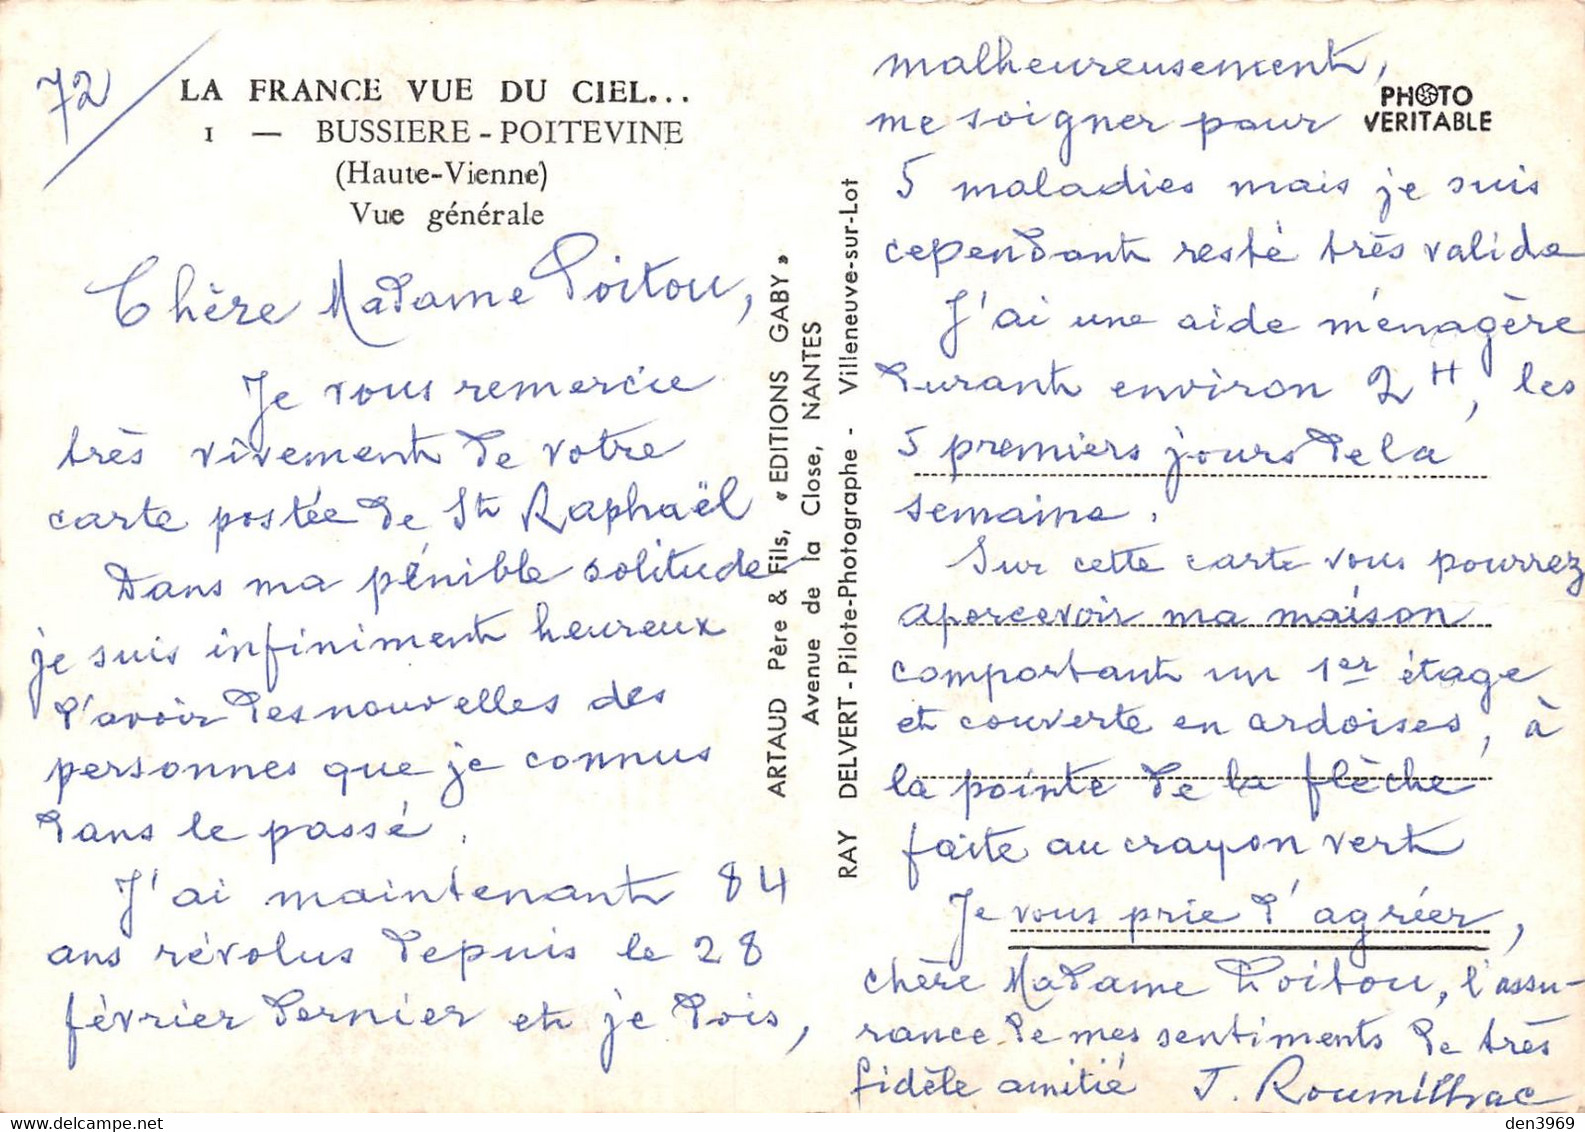 72
LA FRANCE VUE DU CIEL...
1 — BUSSIERE-POITEVINE
(Haute-Vienne)
Vue générale
Chère Madame Poitou,
Je vous remercie
très vivement de votre
carte postée de St Raphaël
Dans ma pénible solitude
je suis infiniment heureux
d'avoir des nouvelles des
personnes que je connus
dans le passé.
J'ai maintenant 84
ans révolus depuis le 28
février dernier et je dois,
ARTAUD Père & Fils, « EDITIONS GABY »
Avenue de la Close, NANTES
RAY DELVERT - Pilote-Photographe - Villeneuve-sur-Lot
PHOTO
VERITABLE
malheureusement,
me soigner pour
5 maladies mais je suis
cependant resté très valide
J'ai une aide ménagère
durant environ 2H, les
5 premiers jours de la
semaine.
Sur cette carte vous pourrez
apercevoir ma maison
comportant un 1er étage
et couverte en ardoises, à
la pointe de la flèche
faite au crayon vert
Je vous prie d'agréer,
chère Madame Poitou, l'assu-
rance de mes sentiments de très
fidèle amitié J. Roumilhac
delcampe.net
den3969